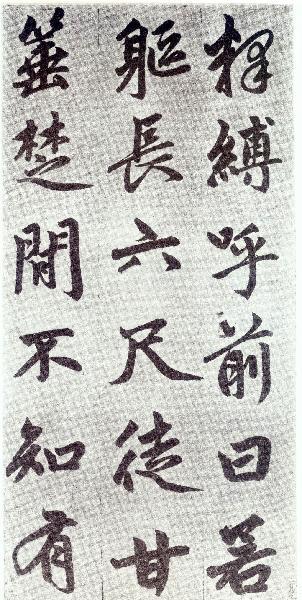 釋縛呼前曰若
軀長六尺徒甘
箠楚間不知有